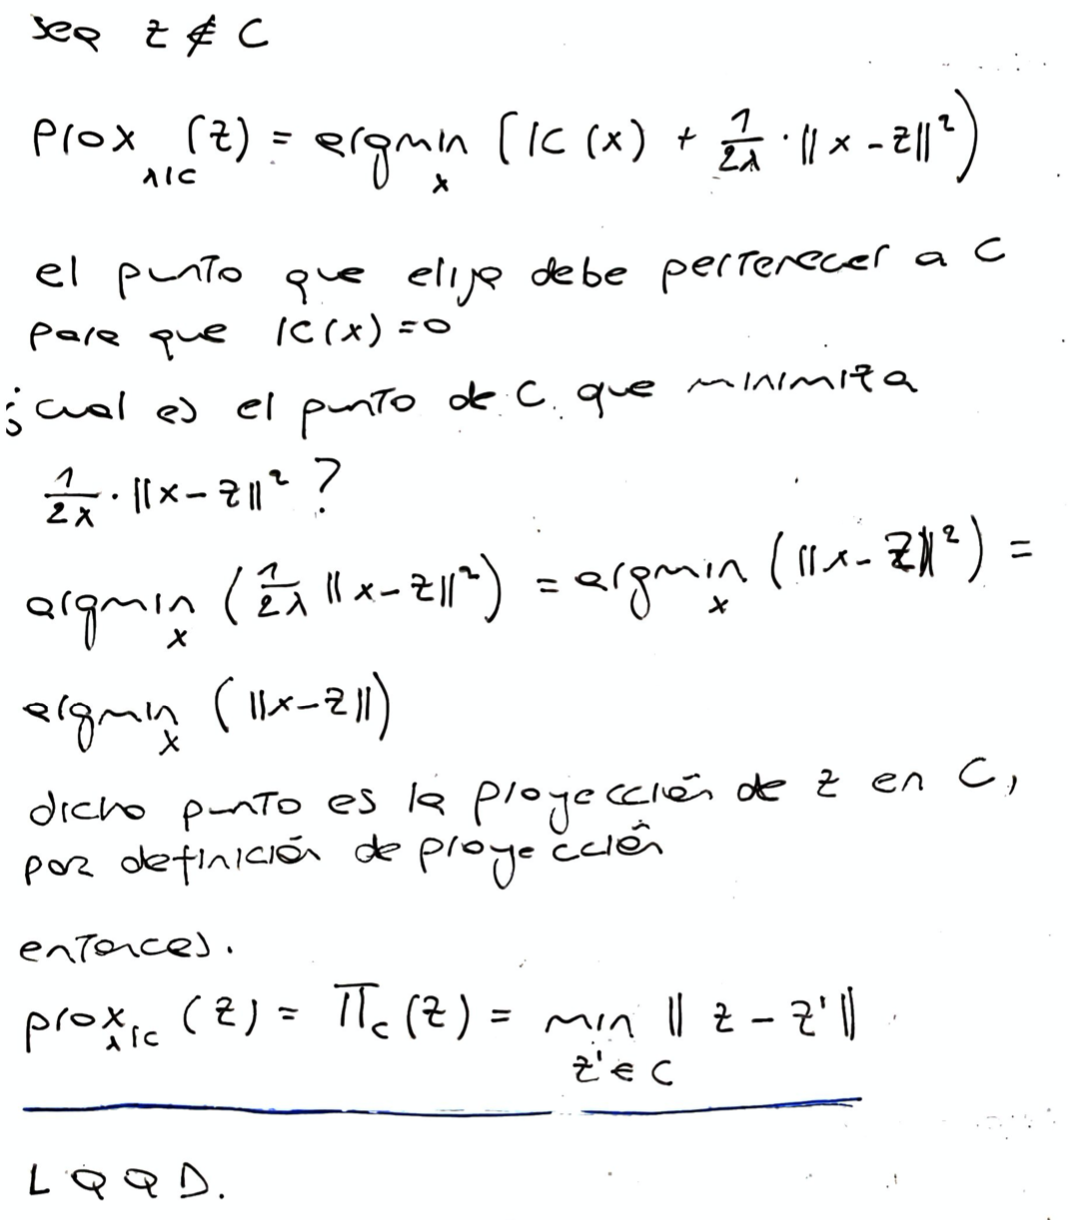 sea z ∉ C
prox_λIC (z) = argmin_x (IC (x) + 1/2λ · ||x - z||²)
el punto que elija debe pertenecer a C
para que IC(x) = 0
¿cual es el punto de C. que minimiza
1/2λ · ||x - z||² ?
argmin_x (1/2λ ||x - z||²) = argmin_x (||x - z||²) =
argmin_x (||x - z||)
dicho punto es la proyección de z en C,
por definición de proyección
entonces.
prox_λIC (z) = Π_C (z) = min_{z' ∈ C} || z - z' ||
LQQD.